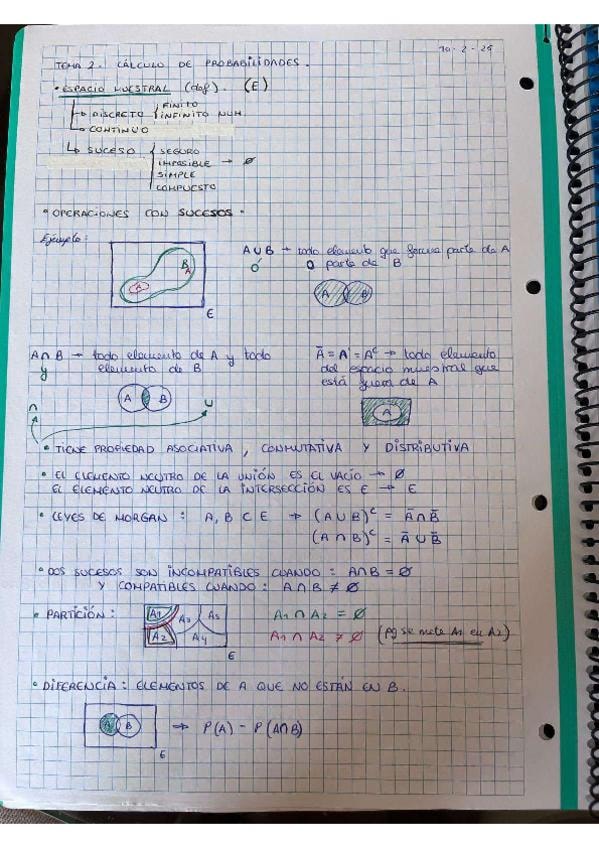 10-2-25
TEMA 2. CÁLCULO DE PROBABILIDADES.
• ESPACIO MUESTRAL (def). (E)
↳ DISCRETO { FINITO
INFINITO NUM.
↳ CONTINUO
↳ SUCESO { SEGURO
IMPOSIBLE → ∅
SIMPLE
COMPUESTO
• OPERACIONES CON SUCESOS •
Ejemplo:
A
B
A
E
A ∪ B → todo elemento que forma parte de A
ó o parte de B
A B
A ∩ B → todo elemento de A y todo
y elemento de B
A B
Ā = A' = Aᶜ → todo elemento
del espacio muestral que
está fuera de A
A
∩ ∪
• TIENE PROPIEDAD ASOCIATIVA, CONMUTATIVA Y DISTRIBUTIVA
• EL ELEMENTO NEUTRO DE LA UNIÓN ES EL VACÍO → ∅
EL ELEMENTO NEUTRO DE LA INTERSECCIÓN ES E → E
• LEYES DE MORGAN : A, B ⊂ E ⇒ (A ∪ B)ᶜ = Ā ∩ B̄
(A ∩ B)ᶜ = Ā ∪ B̄
• DOS SUCESOS SON INCOMPATIBLES CUANDO : A∩B = ∅
Y COMPATIBLES CUANDO : A∩B ≠ ∅
• PARTICIÓN :
A1 A3 A5
A2 A4
E
A1 ∩ A2 = ∅
A1 ∩ A2 ≠ ∅ (pq se mete A1 en A2)
• DIFERENCIA : ELEMENTOS DE A QUE NO ESTÁN EN B.
A B
E
⇒ P(A) - P(A∩B)